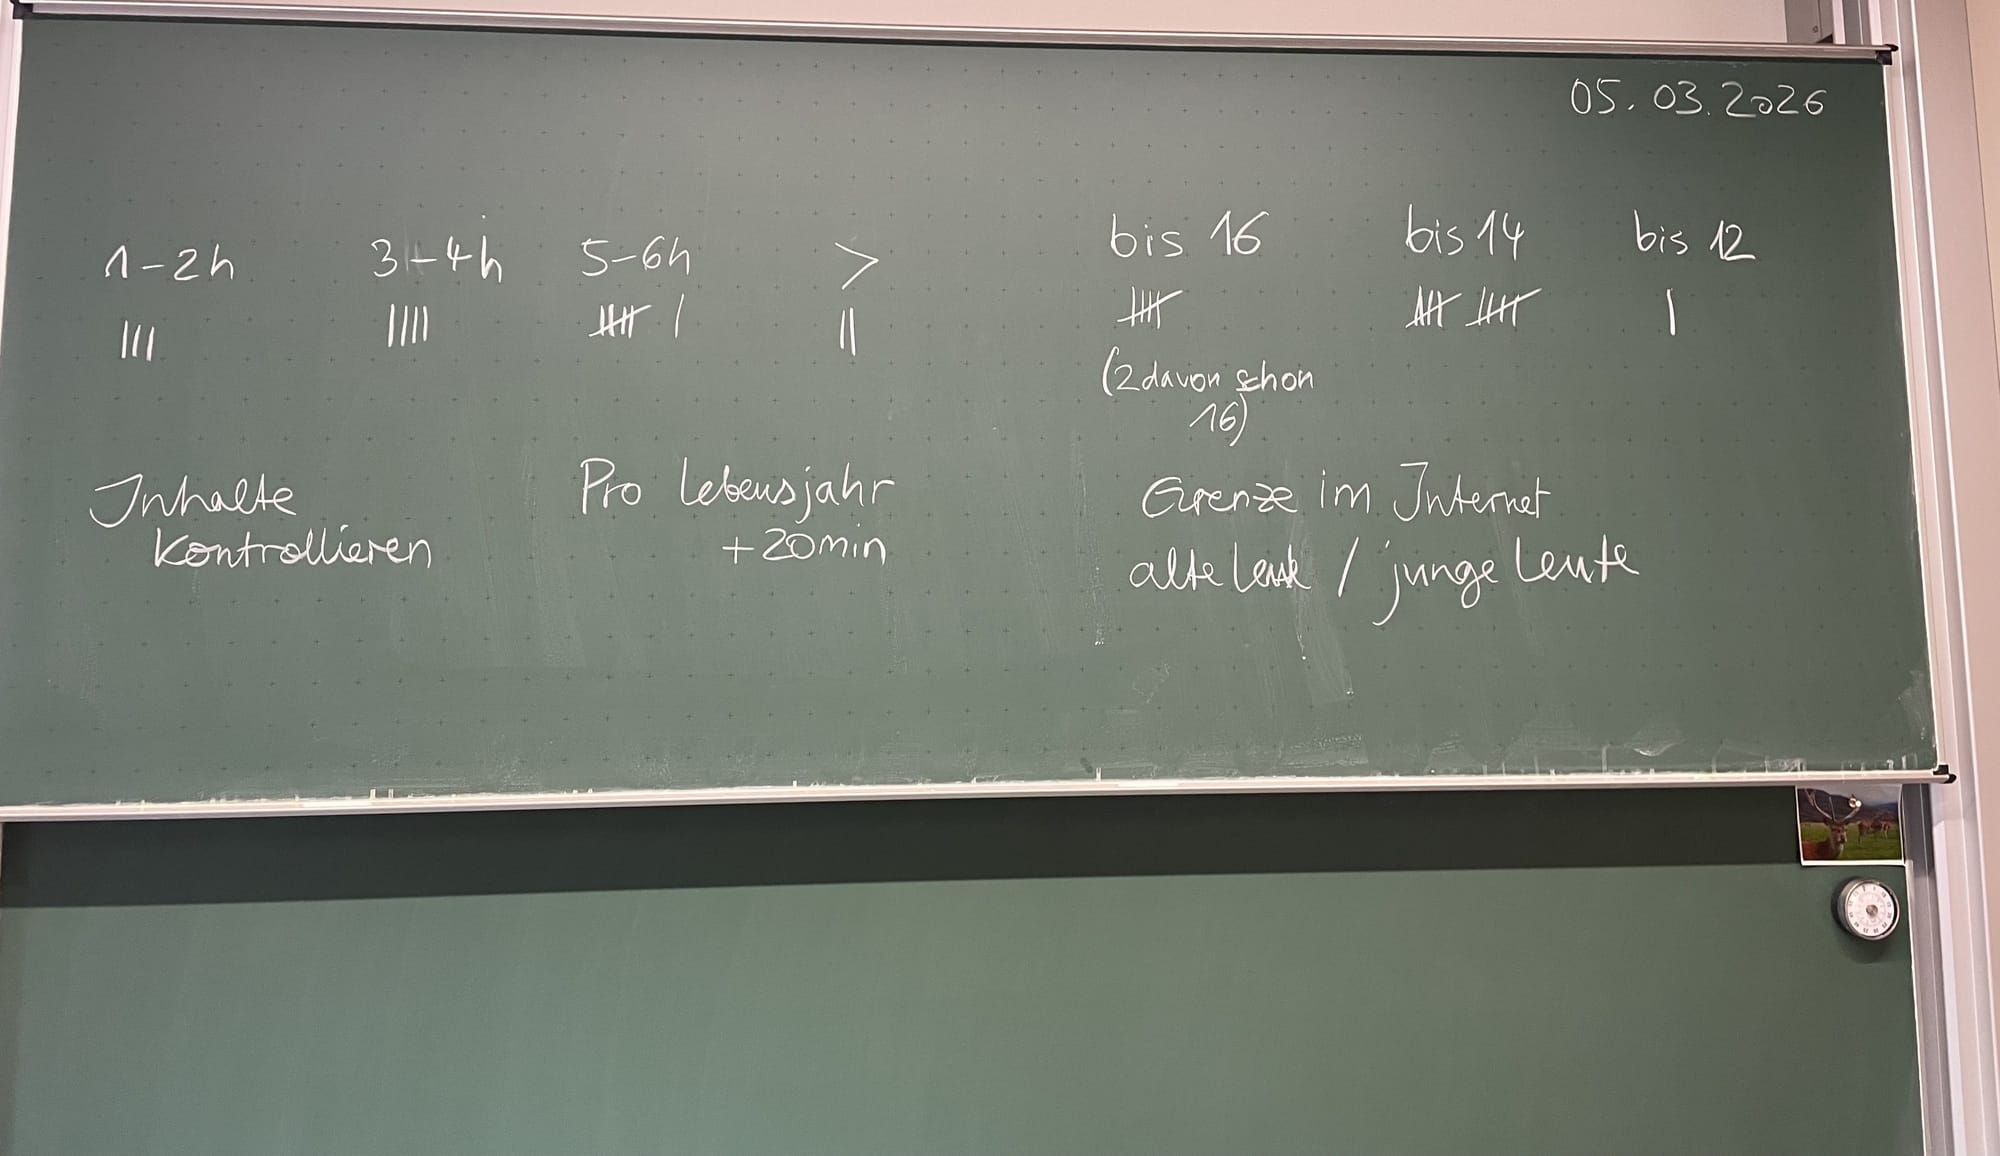 05.03.2026
1-2h 3-4h 5-6h >
||| |||| |||| | ||
Inhalte
kontrollieren
Pro Lebensjahr
+20min
bis 16 bis 14 bis 12
|||| |||| |||| |
(2 davon schon
16)
Grenze im Internet
alte Leute / junge Leute